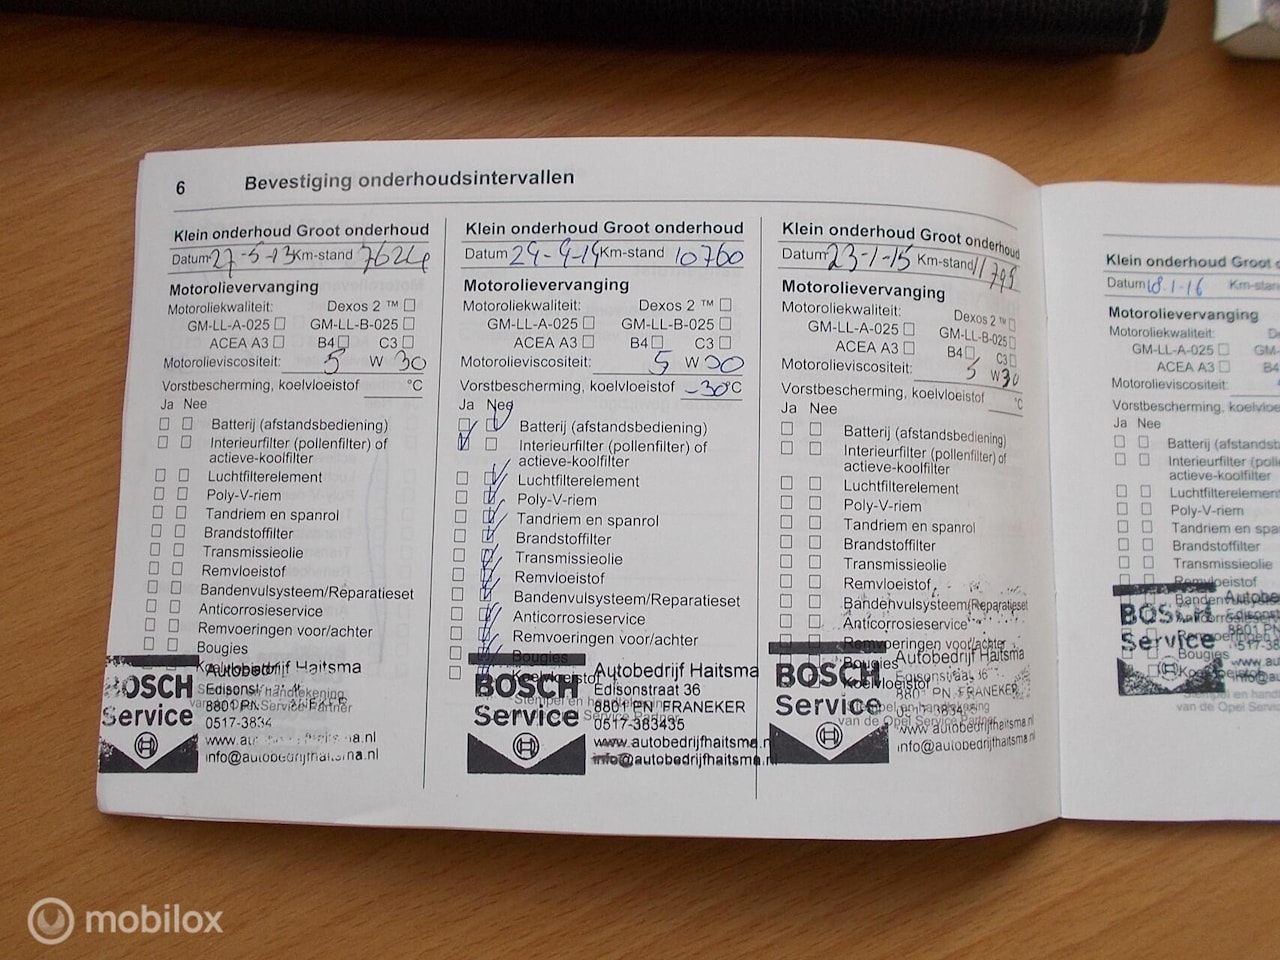 6 Bevestiging onderhoudsintervallen
Klein onderhoud Groot onderhoud
Datum 27-5-13 Km-stand 7624
Motorolievervanging
Motoroliekwaliteit: Dexos 2 ™
GM-LL-A-025 GM-LL-B-025
ACEA A3 B4 C3
Motorolieviscositeit: 5 W 30
Vorstbescherming, koelvloeistof °C
Ja Nee
Batterij (afstandsbediening)
Interieurfilter (pollenfilter) of
actieve-koolfilter
Luchtfilterelement
Poly-V-riem
Tandriem en spanrol
Brandstoffilter
Transmissieolie
Remvloeistof
Bandenvulsysteem/Reparatieset
Anticorrosieservice
Remvoeringen voor/achter
Bougies
BOSCH
Service
Autobedrijf Haitsma
8801 PN
info@autobedrijfhaitsma.nl
Klein onderhoud Groot onderhoud
Datum Km-stand 10760
Motorolievervanging
Motoroliekwaliteit: Dexos 2 ™
GM-LL-A-025 GM-LL-B-025
ACEA A3 B4 C3
Motorolieviscositeit: 5 W 30
Vorstbescherming, koelvloeistof -30 °C
Ja Nee
Batterij (afstandsbediening)
Interieurfilter (pollenfilter) of
actieve-koolfilter
Luchtfilterelement
Poly-V-riem
Tandriem en spanrol
Brandstoffilter
Transmissieolie
Remvloeistof
Bandenvulsysteem/Reparatieset
Anticorrosieservice
Remvoeringen voor/achter
Bougies
Koelvloeistof
BOSCH
Service
Autobedrijf Haitsma
Edisonstraat 36
8801 PN FRANEKER
0517-383435
www.autobedrijfhaitsma.nl
info@autobedrijfhaitsma.nl
Klein onderhoud Groot onderhoud
Datum 23-1-15 Km-stand 11795
Motorolievervanging
Motoroliekwaliteit: Dexos 2 ™
GM-LL-A-025 GM-LL-B-025
ACEA A3 B4 C3
Motorolieviscositeit: 5 W 30
Vorstbescherming, koelvloeistof °C
Ja Nee
Batterij (afstandsbediening)
Interieurfilter (pollenfilter) of
actieve-koolfilter
Luchtfilterelement
Poly-V-riem
Tandriem en spanrol
Brandstoffilter
Transmissieolie
Remvloeistof
Bandenvulsysteem/Reparatieset
Anticorrosieservice
Remvoeringen voor/achter
Bougies
Koelvloeistof
Stempel en handtekening
van de Opel Service Partner
BOSCH
Service
Autobedrijf Haitsma
Edisonstraat 36
8801 PN FRANEKER
www.autobedrijfhaitsma.nl
info@autobedrijfhaitsma.nl
Klein onderhoud Groot
Datum 18.1-16 Km-stan
Motorolievervanging
Motoroliekwaliteit:
GM-LL-A-025 GM-
ACEA A3 B4
Motorolieviscositeit:
Vorstbescherming, koelvloe
Ja Nee
Batterij (afstandsb
Interieurfilter (polle
actieve-koolfilter
Luchtfilterelement
Poly-V-riem
Tandriem en spa
Brandstoffilter
Transmissieolie
Remvloeistof
Bougies
Stempel en hand
van de Opel Serv
BOSCH
Service
mobilox